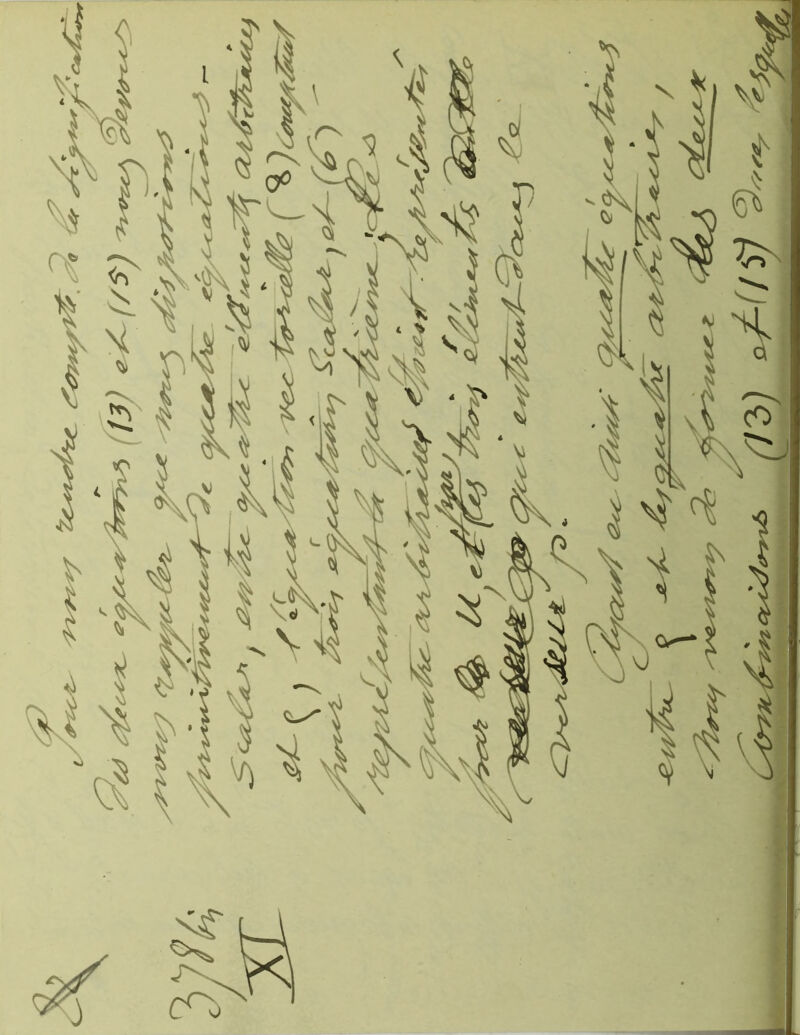 378 bis
XI
Pour nous rendre compte de la signification
des deux équations (13) et (15) nous devons
nous rappeler que nous disposions
primitivement de quatre équations-
Scalar, entre quatre éléments arbitraires
et ζ, l'équation vectorielle (8) comptant
pour trois équations Scalar, et (6) -
représentant la quatrième; les
quatre arbitraires étaient représentés
par U et par les trois éléments
qui entrent dans le
verseur p.
Ayant eu ainsi quatre équations
entre ζ et les quatre arbitraires,
nous venons de former les deux
Combinaisons (13) et (15) dans lesquelles